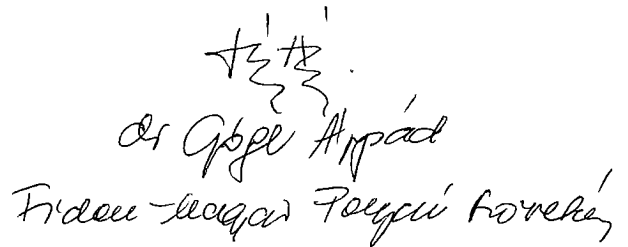 dr Gögl Árpád
Fidesz-Magyar Polgári Szövetség